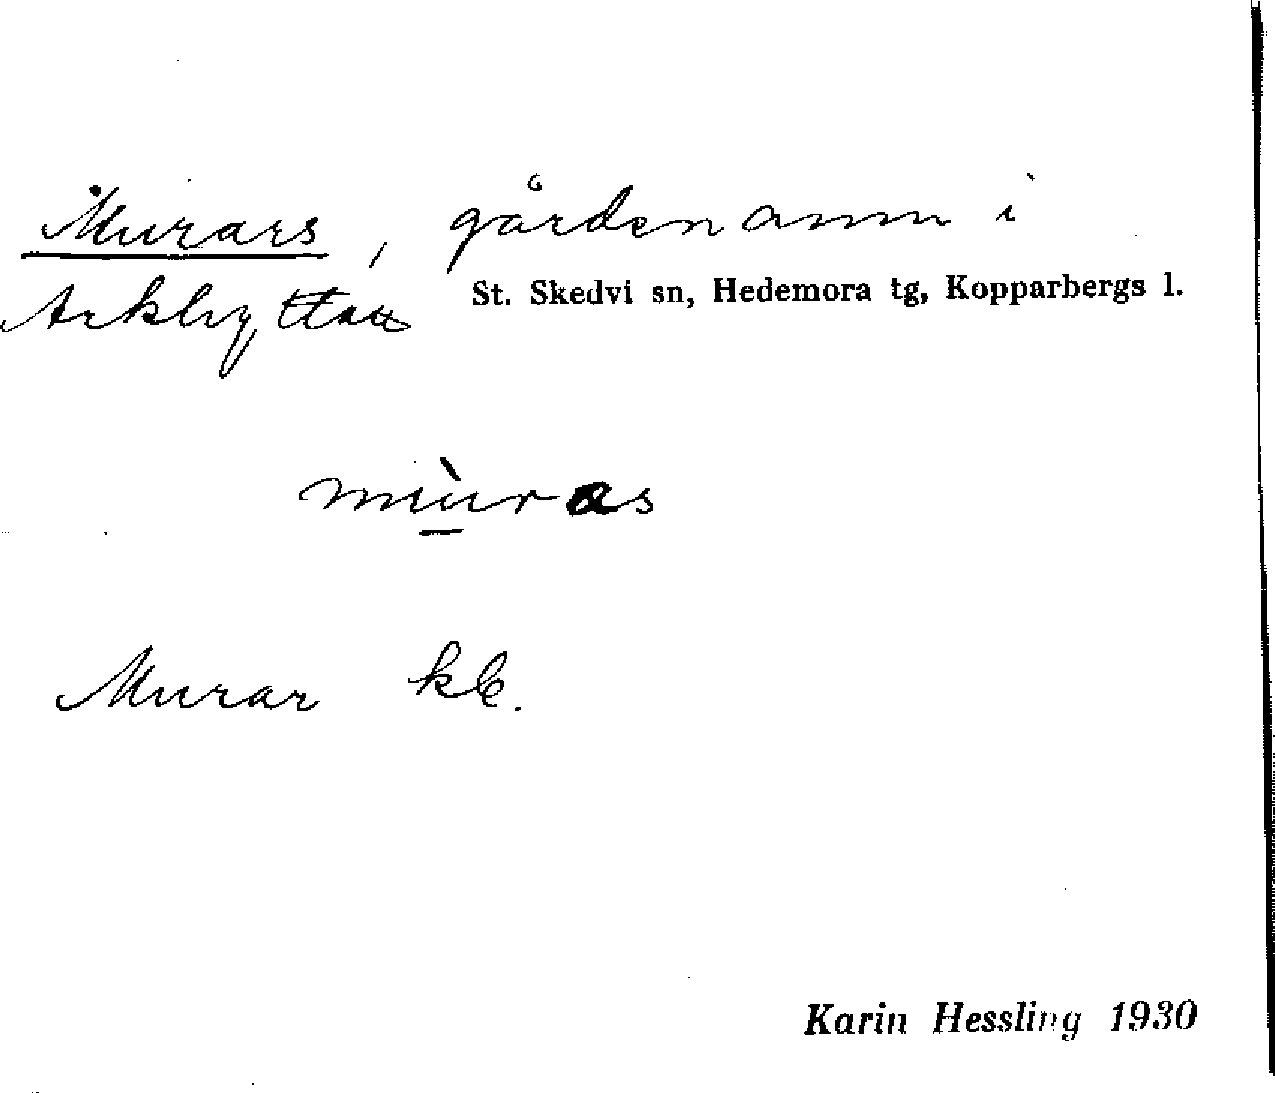 Murars, gårdenamn i
Arkhyttan St. Skedvi sn, Hedemora tg, Kopparbergs l.
mùras
Murar kb.
Karin Hessling 1930